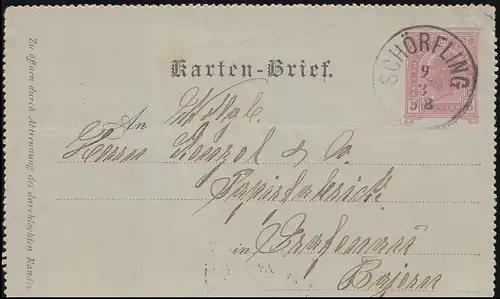 Zu öffnen durch Abtrennung des durchlochten Randes.
Karten-Brief.
SCHÖRFLING
9
3
An Wolgb.
Herrn & Co.
Papierfabrick
in Grafenau
Bajern